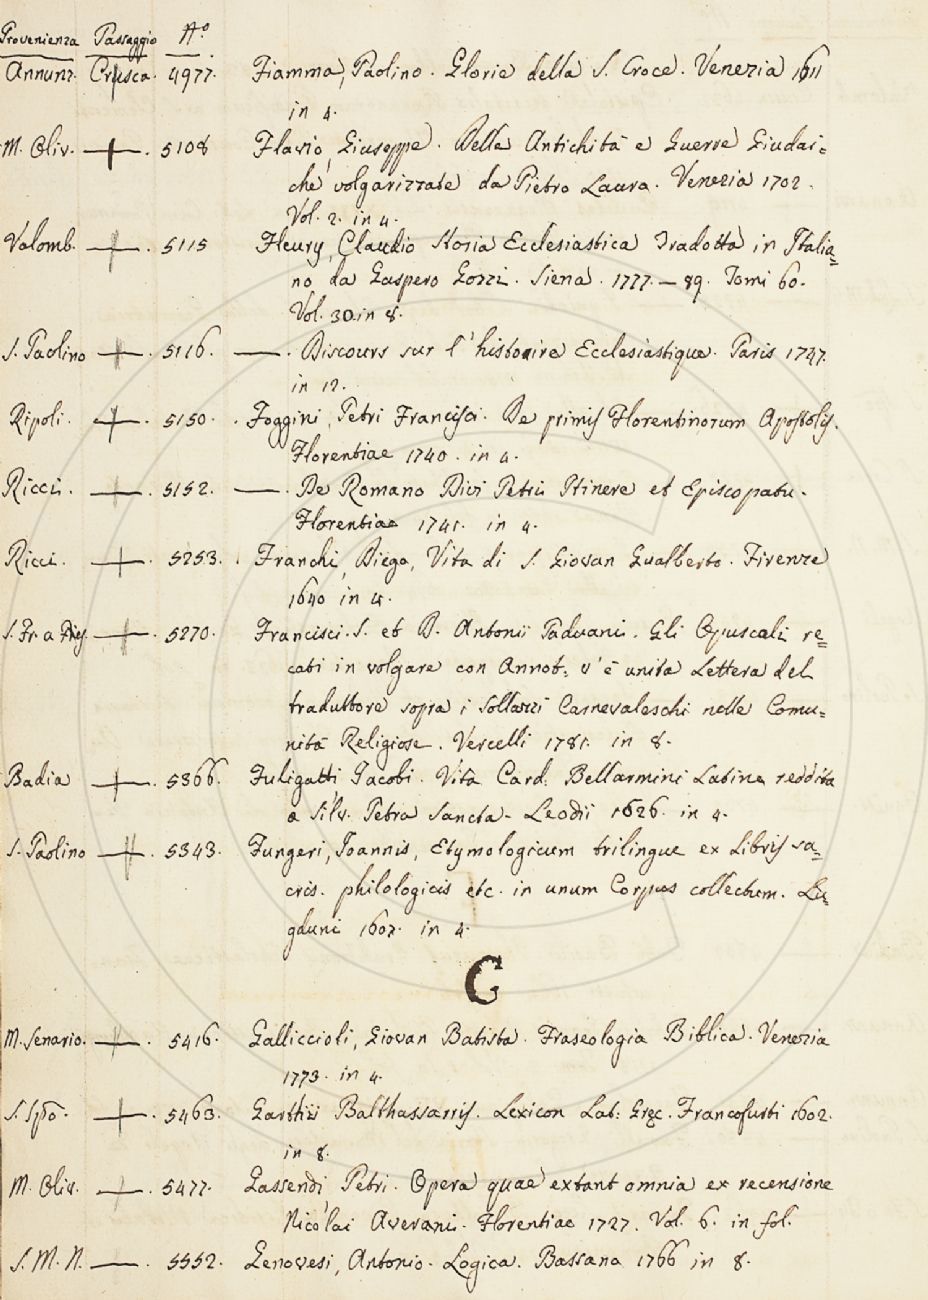 Provenienza Passaggio N.o
Annunz. Crusca. 4977. Fiamma, Paolino. Glorie della S. Croce. Venezia 1611
in 4.
M. Oliv. — . 5108 Flavio, Giuseppe. Delle Antichità e Guerre Giudai=
che volgarizzate da Pietro Laura. Venezia 1702.
Vol. 2. in 4.
Valomb. — . 5115 Fleury, Claudio Storia Ecclesiastica Tradotta in Italia=
no da Gaspero Gozzi. Siena. 1777. — 89. Tomi 60.
Vol. 30. in 8.
S. Paolino — . 5116. — . Discours sur l'histoire Ecclesiastique. Paris 1747.
in 12.
Ripoli. — . 5150. . Foggini, Petri Francisci. De primis Florentinorum Apostolis.
Florentiae 1740. in 4.
Ricci. — . 5152. — . De Romano Divi Petri Itinere et Episcopatu.
Florentiae 1741. in 4.
Ricci. — . 5253. . Franchi, Diego, Vita di S. Giovan Gualberto. Firenze
1640 in 4.
S. Fr. a — . 5270. Francisci. S. et B. Antonii Paduani. Gli Opuscoli re=
cati in volgare con Annot: v'è unita Lettera del
traduttore sopra i sollazzi Carnevaleschi nelle Comu=
nità Religiose. Vercelli 1781. in 8.
Badia — . 5366. Fuligatti Jacobi. Vita Card. Bellarmini Latine reddita
a Silv. Petra Sancta. Leodii 1626. in 4.
S. Paolino — . 5343. Fungeri, Joannis, Etymologicum trilingue ex Libris sa=
cris. philologicis etc. in unum Corpus collectum. Lu=
gduni 1607. in 4.
G
M. Senario. — . 5416. Galliccioli, Giovan Batista. Fraseologia Biblica. Venezia
1773. in 4.
S. Spo. — . 5463. Garthii Balthassarris. Lexicon Lat: Grec. Francofurti 1602.
in 8.
M. Oliv. — . 5477. Gassendi, Petri. Opera quae extant omnia ex recensione
Nicolai Averani. Florentiae 1727. Vol. 6. in fol.
S. M. N. — . 5552. Genovesi, Antonio. Logica. Bassano 1766 in 8.